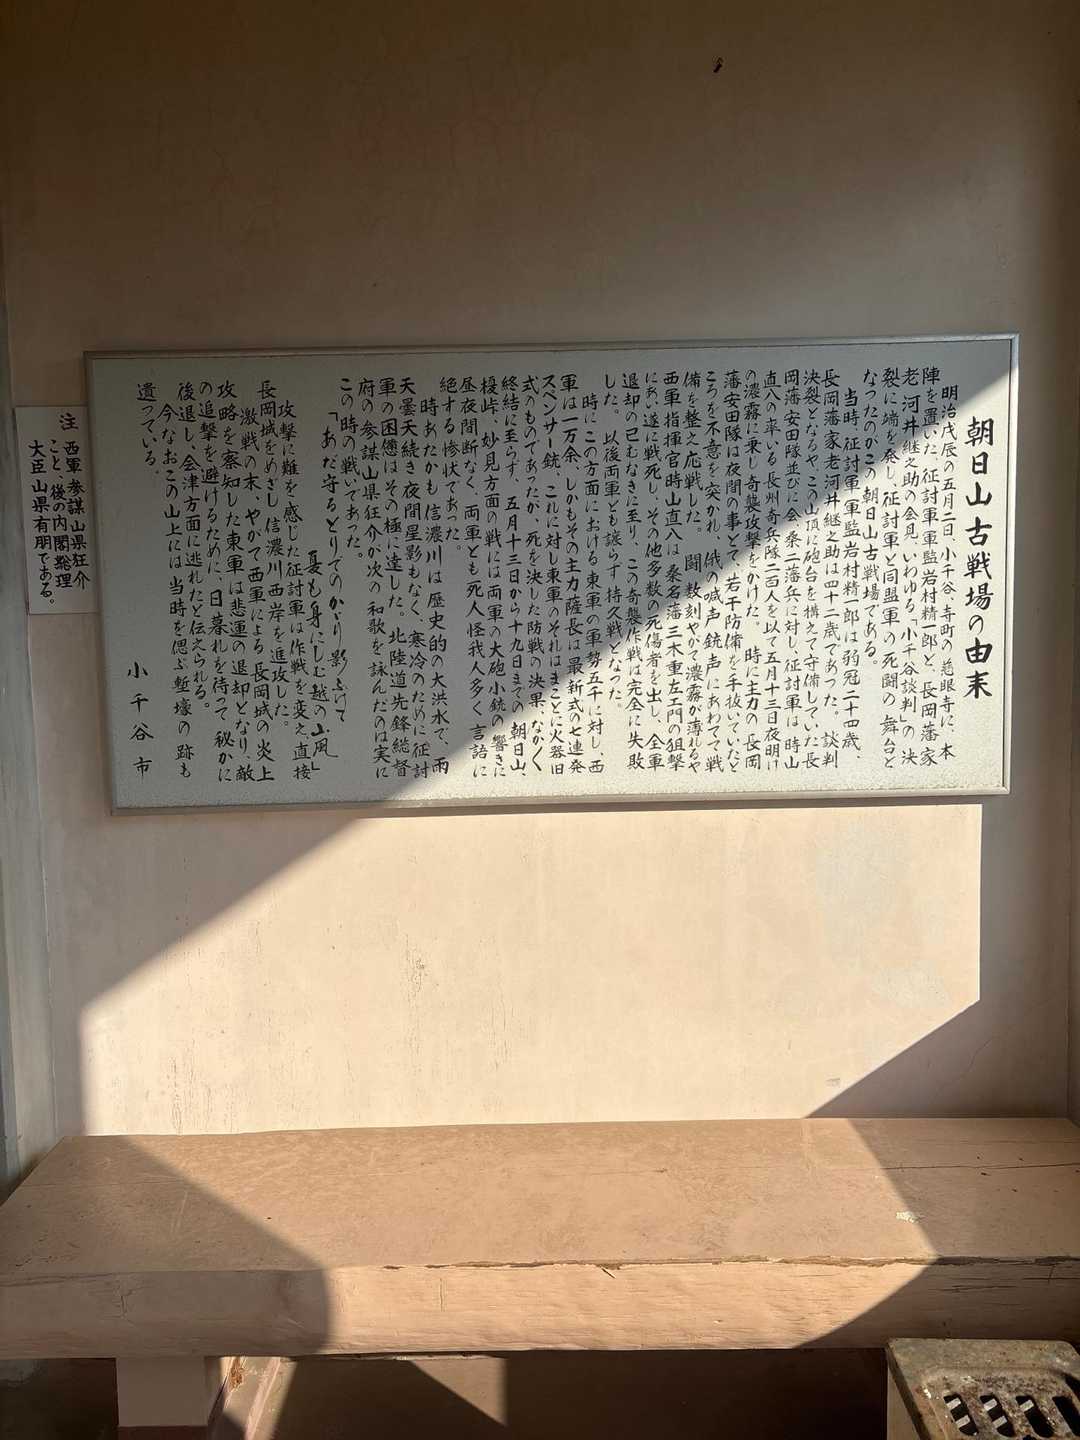 朝日山古戦場の由来
明治戊辰の五月二日、小千谷、寺町の慈眼寺に、本
陣を置いた、征討軍軍監岩村精一郎と、長岡藩家
老、河井継之助の会見、いわゆる「小千谷談判」の決
裂に端を発し、征討軍と同盟軍の死闘の舞台と
なったのがこの朝日山古戦場である。
当時、征討軍軍監岩村精一郎は弱冠二十四歳、
長岡藩家老河井継之助は四十二歳であった。談判
決裂となるや、この山頂に砲台を構えて守備していた長
岡藩安田隊並びに会桑二藩兵に対し、征討軍は時山
直八の率いる長州奇兵隊二百人を以て五月十三日夜明け
の濃霧に乗じ奇襲攻撃をかけた。時に主力の長岡
藩安田隊は夜間の事とて、若干防備を手抜いていたと
ころを不意を突かれ、俄の喊声、銃声にあわてて戦
備を整え応戦した。闘数刻やがて濃霧が薄れるや
西軍指揮官時山直八は桑名藩三木重左エ門の狙撃
にあい遂に戦死し、その他多数の死傷者を出し、全軍
退却の已むなきに至り、この奇襲作戦は完全に失敗
した。以後両軍とも譲らず持久戦となった。
時にこの方面における東軍の軍勢五千に対し、西
軍は一万余、しかもその主力薩長は最新式の七連発
スペンサー銃、これに対し東軍のそれはまことに火器旧
式のものであったが、死を決した防戦の決果、なかなく
終結に至らず、五月十三日から十九日までの朝日山、
榎峠、妙見方面の戦には両軍の大砲小銃の響きに
昼夜間断なく、両軍とも死人怪我人多く言語に
絶する惨状であった。
時あたかも信濃川は歴史的の大洪水で、雨
天曇天続き夜間星影もなく、寒冷のために征討
軍の困憊はその極に達した。北陸道先鋒総督
府の参謀山県狂介が次の和歌を詠んだのは実に
この時の戦いであった。
「あだ守るとりでのかゞり影ふけて
夏も身にしむ越の山風」
攻撃に難を感じた征討軍は作戦を変え、直接
長岡城をめざし信濃川西岸を進攻した。
激戦の末、やがて西軍による長岡城の火上
攻略を察知した東軍は悲運の退却となり、敵
の追撃を避けるために、日暮れを待って秘かに
後退し、会津方面に逃れたと伝えられる。
今なおこの山上には当時を偲ぶ塹壕の跡も
遺っている。
小千谷市
注 西軍参謀山県狂介
こと、後の内閣総理
大臣山県有朋である。